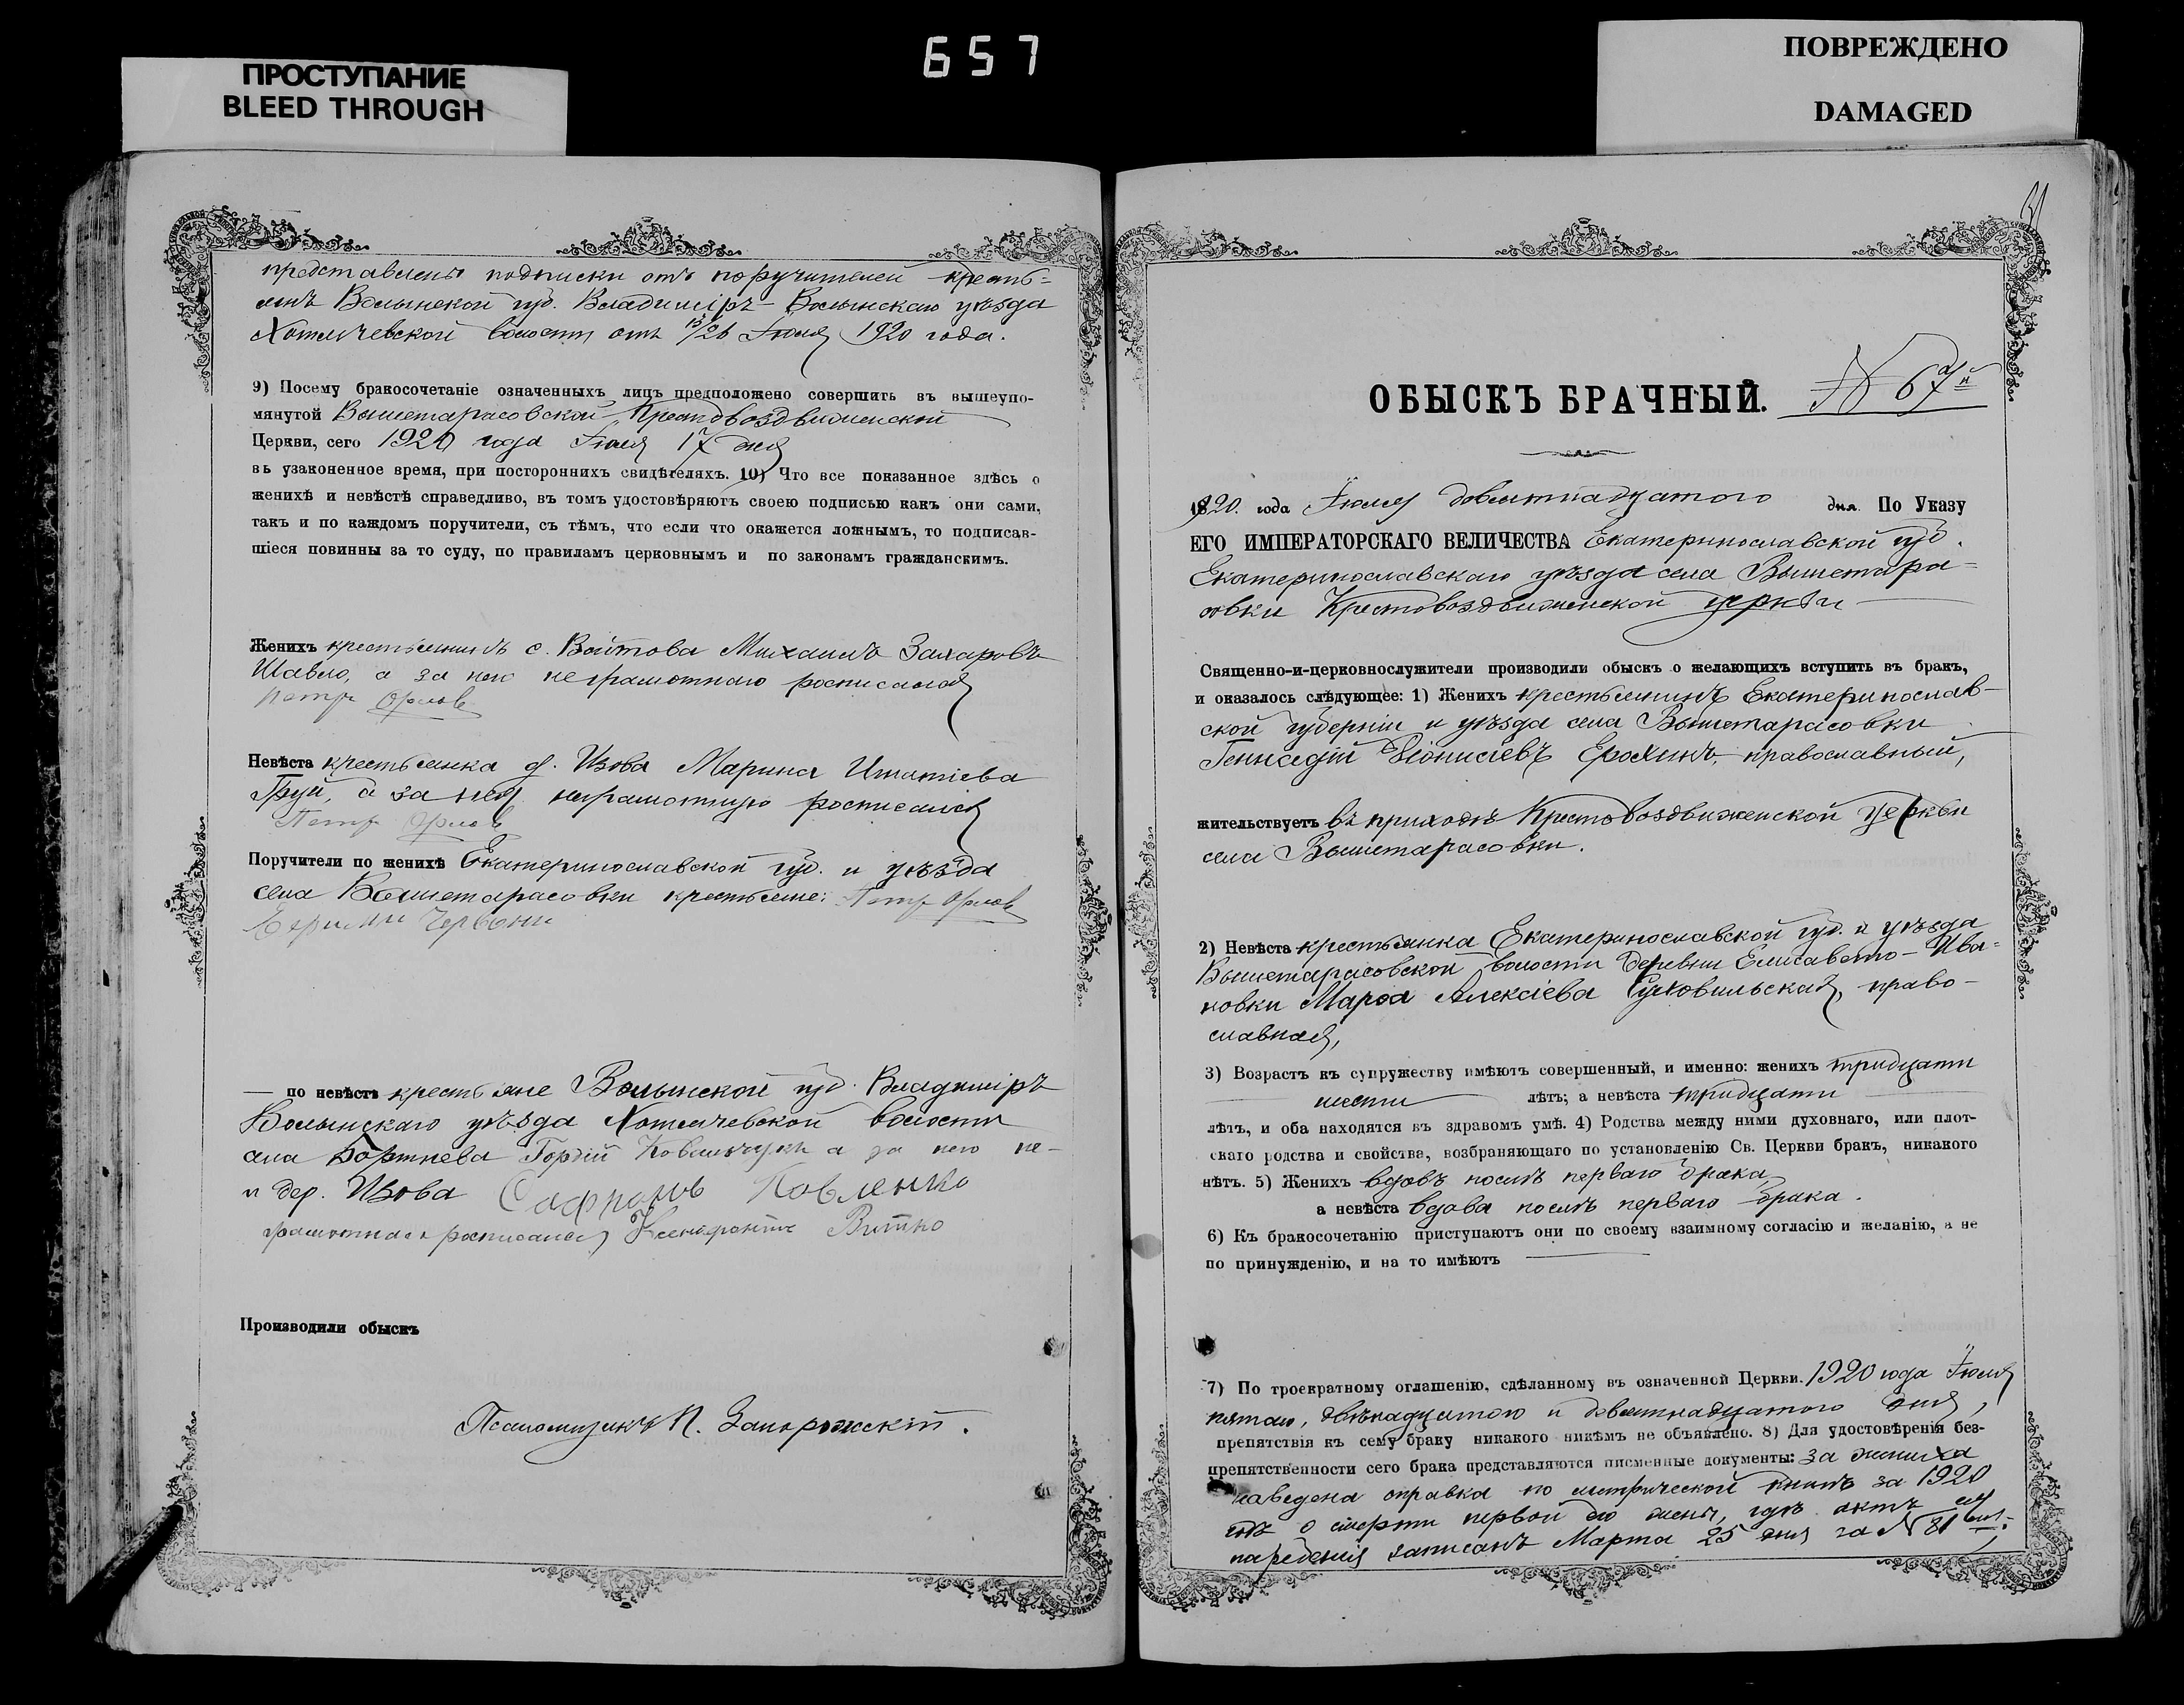 657
ПРОСТУПАНИЕ
BLEED THROUGH
ПОВРЕЖДЕНО
DAMAGED
представлены подписки отъ поручителей кресть-
янъ Волынской губ. Владиміръ-Волынскаго уѣзда
Хотячевской волости отъ 13/26 Іюля 1920 года.
9) Посему бракосочетаніе означенныхъ лицъ предположено совершить въ вышеупо-
мянутой Вышетарасовской Крестовоздвиженской
Церкви, сего 1920 года Іюля 17 дня
въ узаконенное время, при постороннихъ свидѣтеляхъ. 10) Что все показанное здѣсь о
женихѣ и невѣстѣ справедливо, въ томъ удостовѣряютъ своею подписью какъ они сами,
такъ и по каждомъ поручители, съ тѣмъ, что если что окажется ложнымъ, то подписав-
шіеся повинны за то суду, по правиламъ церковнымъ и по законамъ гражданскимъ.
Женихъ крестьянинъ с. Войтова Михаилъ Захаровъ
Шавло, а за него неграмотнаго росписался
Петръ Орловъ
Невѣста крестьянка д. Изова Марина Игнатіева
Груй, а за нея неграмотную росписался
Петръ Орловъ
Поручители по женихѣ Екатеринославской губ. и уѣзда
села Вышетарасовки крестьяне: Петръ Орловъ
Червони
— по невѣстѣ крестьяне Волынской губ. Владиміръ
Волынскаго уѣзда Хотячевской волости
села Бортнева Гордій а за него не-
и дер. Изова Сафронъ Ковленко
грамотнаго росписался Витко
Производили обыскъ
Псаломщикъ П. Запорожскій.
31
ОБЫСКЪ БРАЧНЫЙ. № 67й
1920. года Іюля девятнадцатого дня. По Указу
ЕГО ИМПЕРАТОРСКАГО ВЕЛИЧЕСТВА Екатеринославской губ.
Екатеринославскаго уѣзда села Вышетара-
совки Крестовоздвиженской церкви
Священно-и-церковнослужители производили обыскъ о желающихъ вступить въ бракъ,
и оказалось слѣдующее: 1) Женихъ крестьянинъ Екатеринослав-
ской губерніи и уѣзда села Вышетарасовки
Геннадій Діонисіевъ Ерохинъ, православный,
жительствуетъ въ приходѣ Крестовоздвиженской церкви
села Вышетарасовки.
2) Невѣста крестьянка Екатеринославской губ. и уѣзда
Вышетарасовской волости деревни Елисавето-Ива-
новки Алексіева право-
славная,
3) Возрастъ къ супружеству имѣютъ совершенный, и именно: женихъ тридцати
шести лѣтъ; а невѣста тридцати
лѣтъ, и оба находятся въ здравомъ умѣ. 4) Родства между ними духовнаго, или плот-
скаго родства и свойства, возбраняющаго по установленію Св. Церкви бракъ, никакого
нѣтъ. 5) Женихъ вдовъ послѣ перваго брака,
а невѣста вдова послѣ перваго брака.
6) Къ бракосочетанію приступаютъ они по своему взаимному согласію и желанію, а не
по принужденію, и на то имѣютъ
7) По троекратному оглашенію, сдѣланному въ означенной Церкви. 1920 года Іюля
пятаго, двѣнадцатого и девятнадцатого дня,
препятствія къ сему браку никакого никѣмъ не объявлено. 8) Для удостовѣренія без-
препятственности сего брака представляются писменные документы: за жениха
наведена справка по метрической книгѣ за 1920
годъ о смерти первой его жены, гдѣ актъ
записанъ Марта 25 дня за № 81